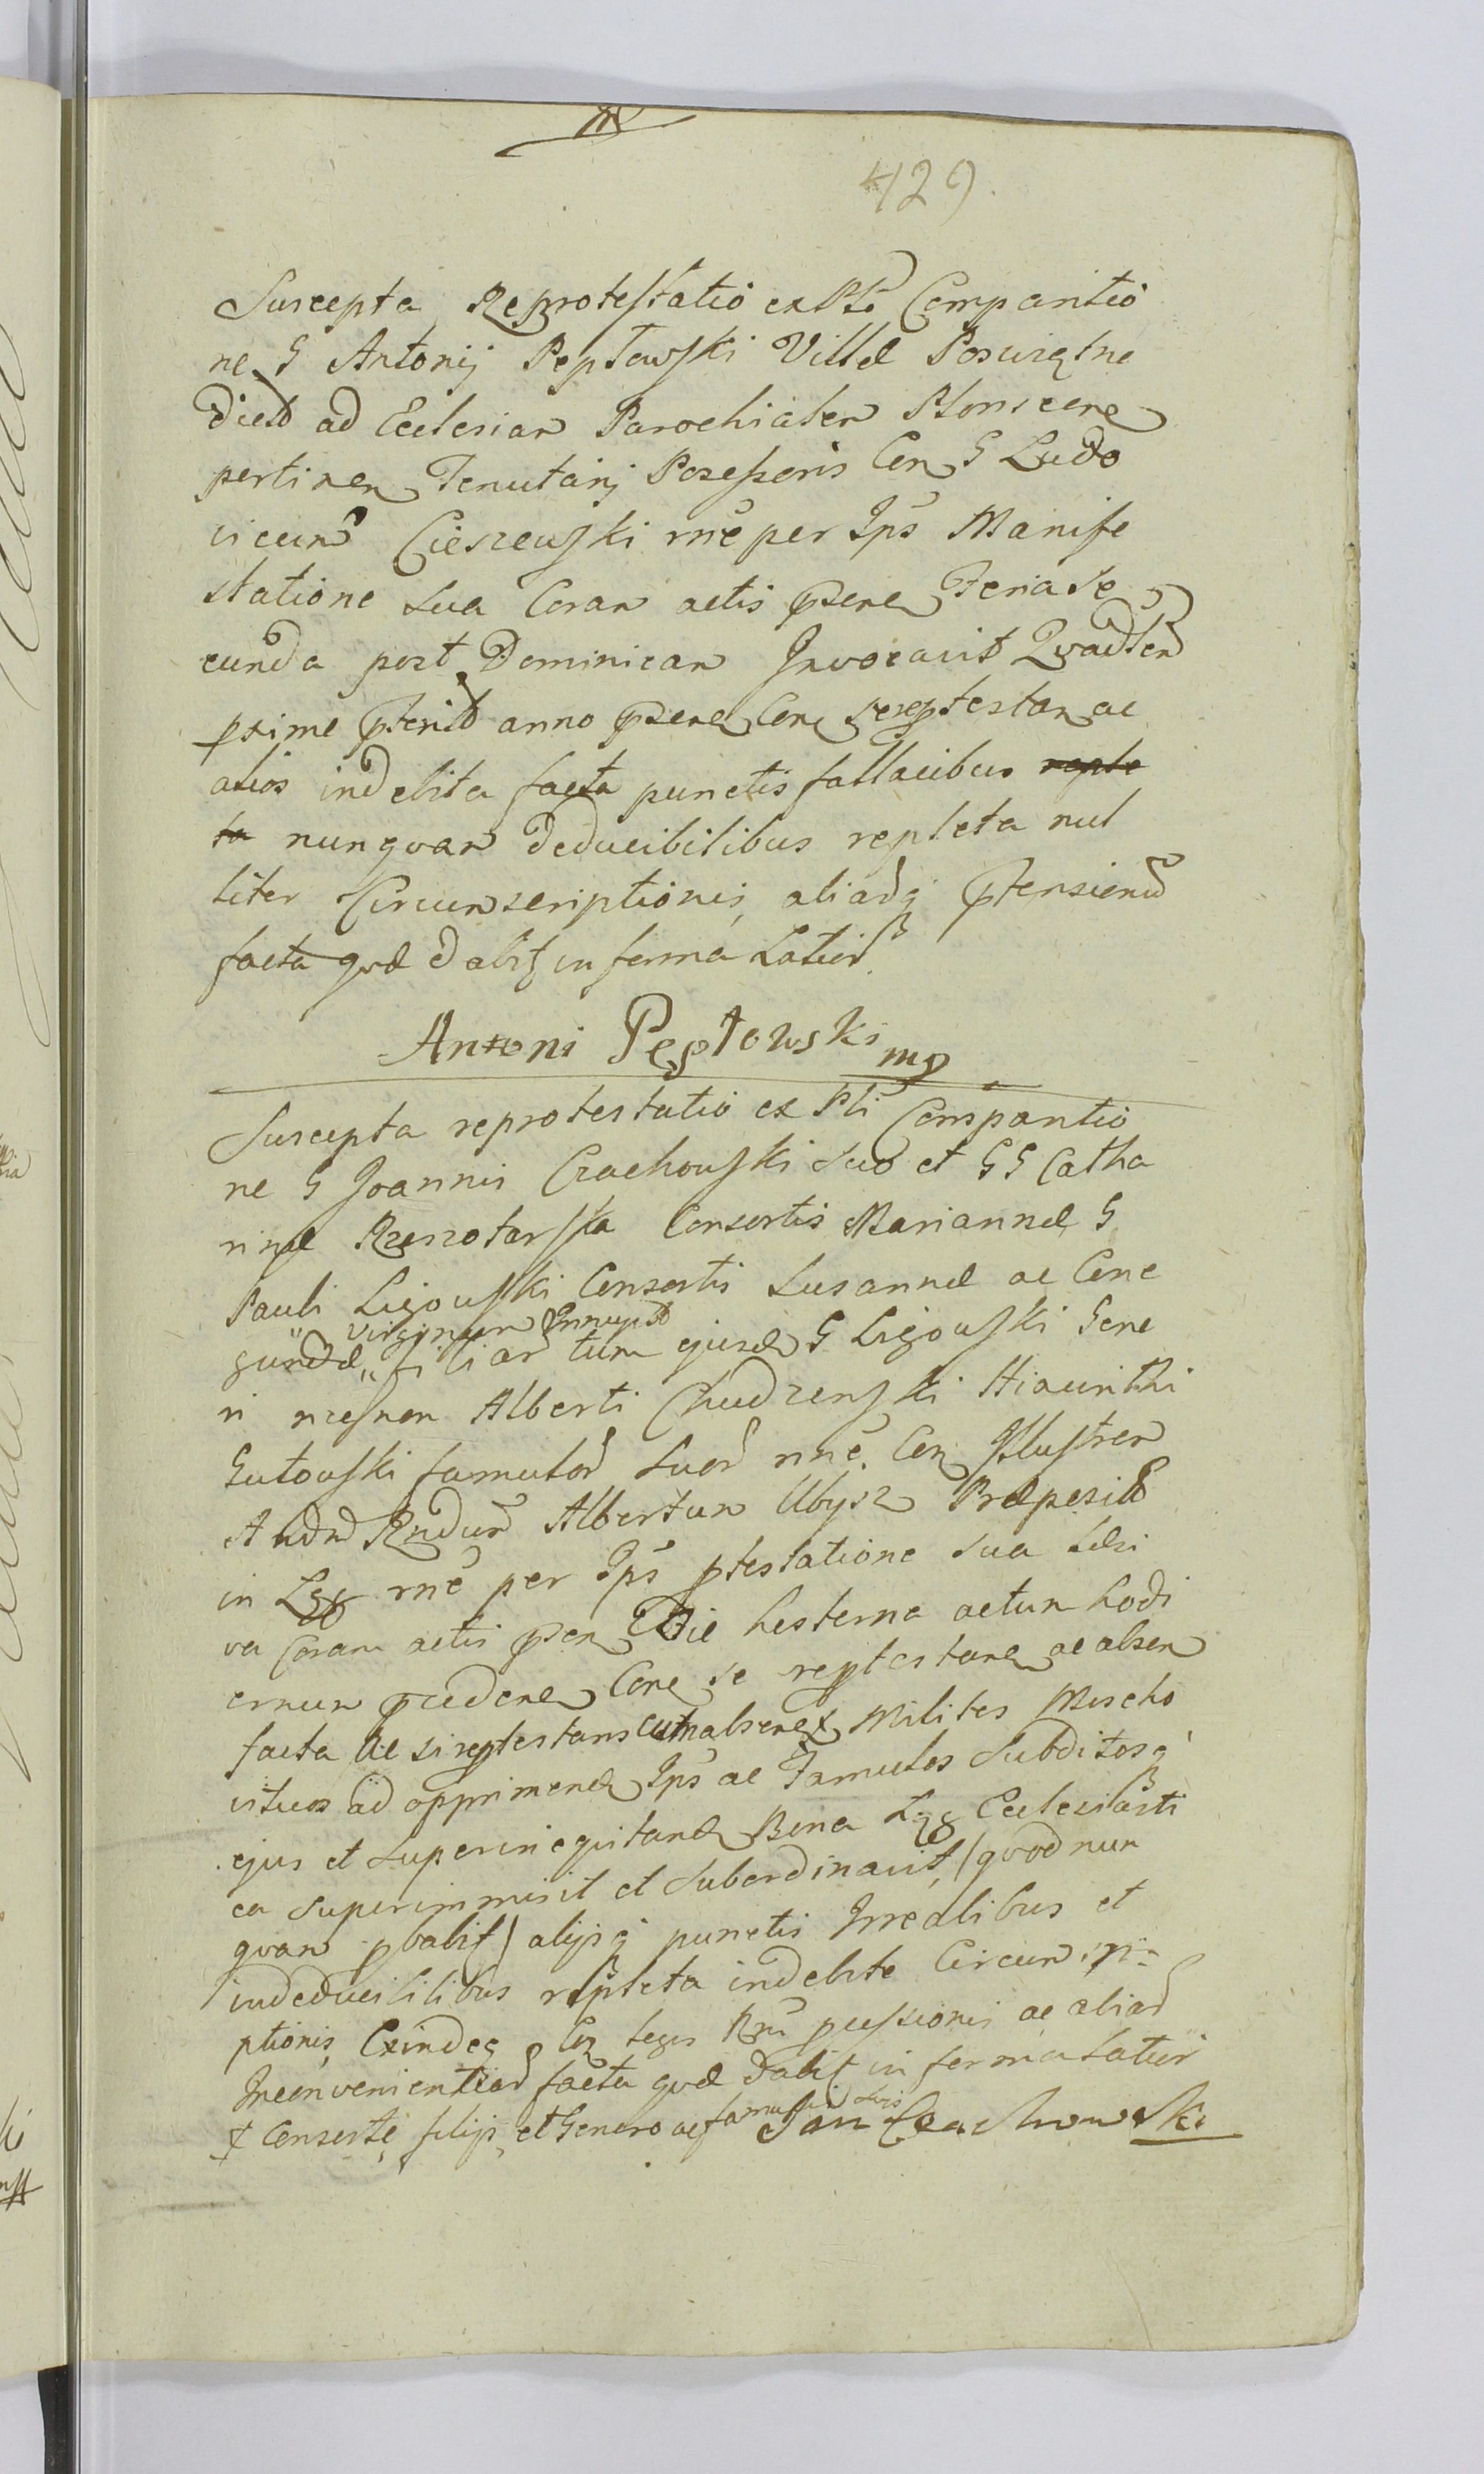 429.
Suscepta Reprotestatio ex Plti Comparitio
ne G Antonij Pepłowski Villæ Poswiętne
dictæ ad Ecclesiam Parochialem Płonscen
pertinen Tenutarij Possessoris Con G Ludo
vicum Cieszewski rne per Ips Manife
statione sua Coram actis præn Feria Se
cunda post Dominicam Invocavit Qvadlem
prime præterito anno præn Con se represtan ac
alios indebita facta punctis fallacibus reple
ta nunqvam deducibilibus repleta nul
liter Circumscriptionis, aliarq prætensionu
facta qvæ dabit in forma Latiori
Antoni Pepłowski mp
Suscepta reprotestatio ex Plti Comparitio
ne G Joannis Czachowski suo et GG Catha
rinæ Rzeszotarska Consortis Mariannæ G
Pauli Ligowski Consortis Susannæ ac Cune
gundæ " virginum Innupta
" filiar tum ejusd G Ligowski Gene
ri necnon Alberti Chudzenski Hiacinthi
Gutowski famulor suor nne Con Illustrem
Andm Rndum Albertum Ubysz Præposito
in Lgg rne per Ips ptestatione sua Lesi
va Coram actis præn Die hesterna actum hodi
ernum præceden Con se represtan ac absen
facta Ac si represtans cum absen + Milites Moscho
viticos ad opprimend Ips ac Famulos Subditosq
ejus et superineqvitand Bona Lgg Ecclesiasti
ca superimmisit et subordinavit, (qvod nun
qvam pbabit) alijsq punctis Irrealibus et
indeducibilibus repleta indebite Circumscri=
ptionis, Exindeq Con leges Rni pcussionis ac aliar
Inconvenientiar facta qvæ dabit in forma Latiori
+ Consorte filijs et Genero ac famulis suis Jan Czachowski